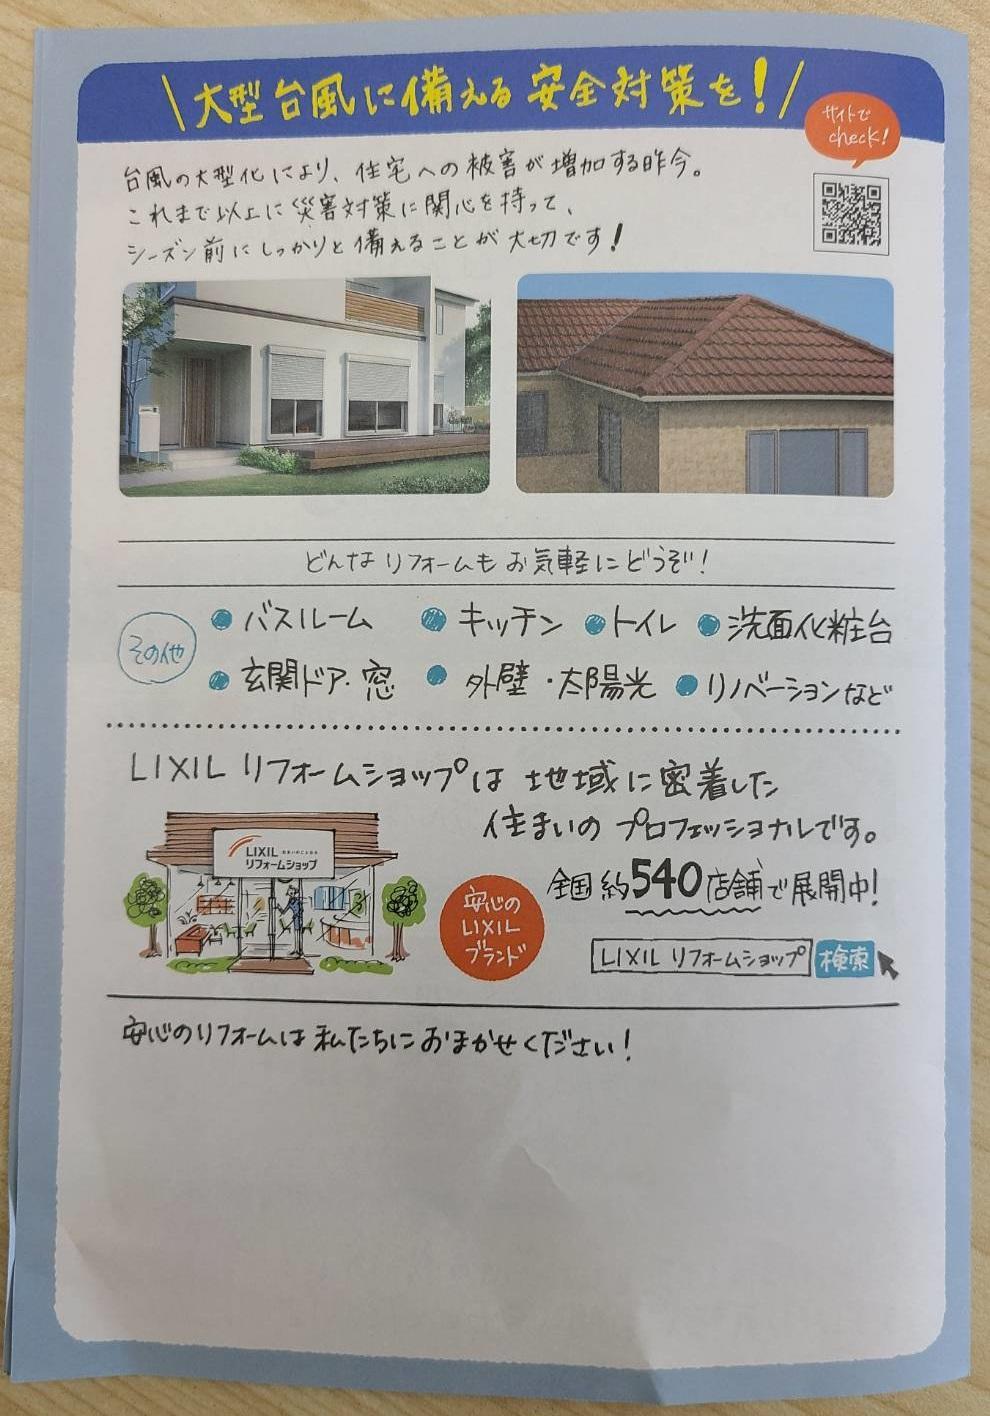 大型台風に備える安全対策を!
サイトで
check!
台風の大型化により、住宅への被害が増加する昨今。
これまで以上に災害対策に関心を持って、
シーズン前にしっかりと備えることが大切です!
どんなリフォームもお気軽にどうぞ!
その他
●バスルーム ●キッチン ●トイレ ●洗面化粧台
●玄関ドア・窓 ●外壁・太陽光 ●リノベーションなど
LIXILリフォームショップは地域に密着した
住まいのプロフェッショナルです。
LIXIL 住まいのことなら
リフォームショップ
安心の
LIXIL
ブランド
全国約540店舗で展開中!
LIXILリフォームショップ 検索
安心のリフォームは私たちにおまかせください!